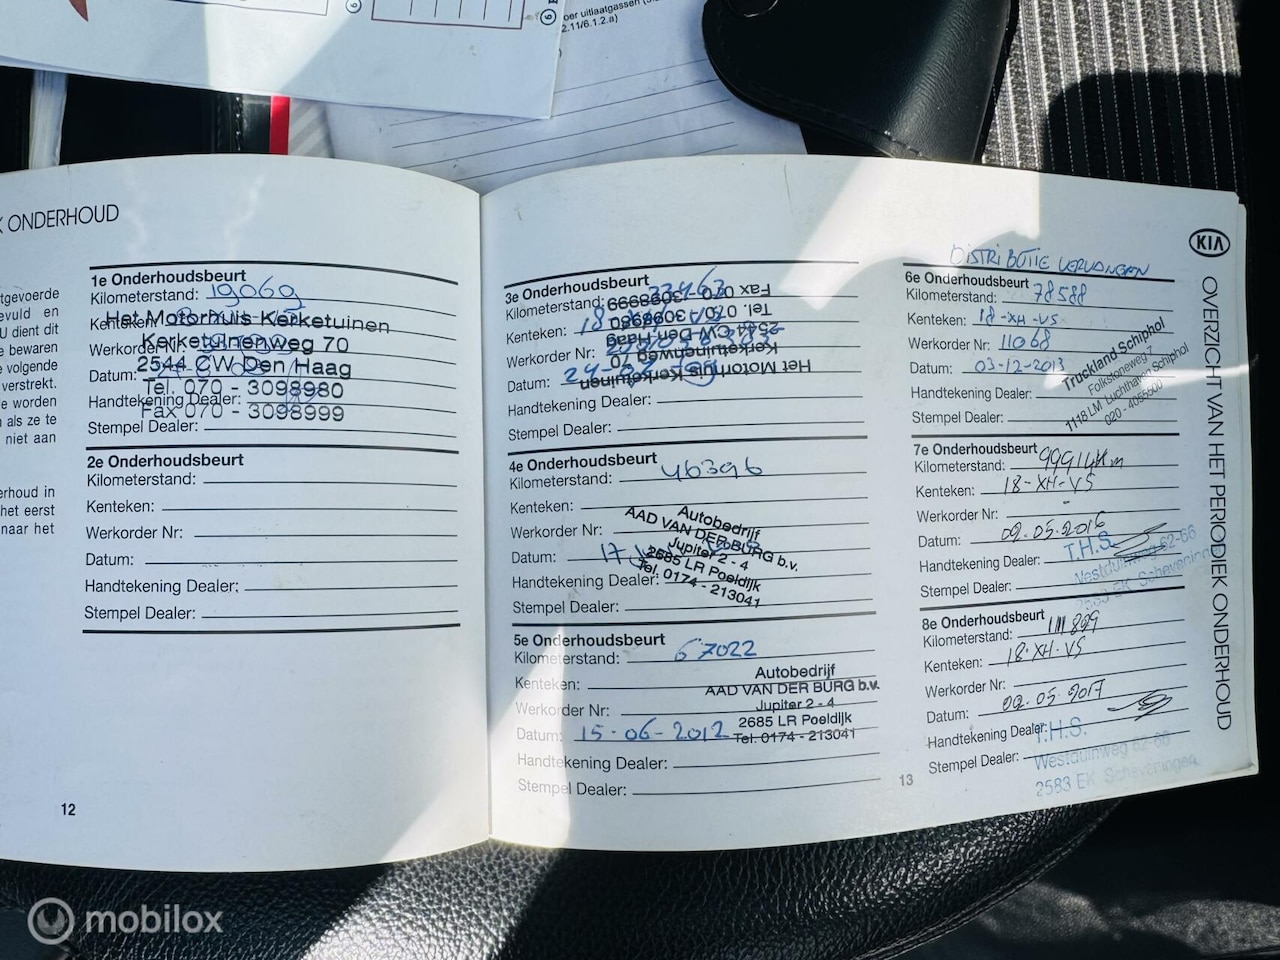 K ONDERHOUD
tgevoerde
evuld en
U dient dit
e bewaren
e volgende
verstrekt.
le worden
als ze te
niet aan
erhoud in
het eerst
naar het
1e Onderhoudsbeurt
Kilometerstand: 19069
Kenteken:
Werkorder
Datum:
Handtekening Dealer:
Stempel Dealer:
Het Motorhuis Kerketuinen
Kerketuinenweg 70
2544 CW Den Haag
Tel. 070 - 3098980
Fax 070 - 3098999
2e Onderhoudsbeurt
Kilometerstand:
Kenteken:
Werkorder Nr:
Datum:
Handtekening Dealer:
Stempel Dealer:
12
3e Onderhoudsbeurt
Kilometerstand:
Kenteken: 18
Werkorder Nr:
Datum:
Handtekening Dealer:
Stempel Dealer:
Het Motorhuis Kerketuinen
Kerketuinenweg 70
2544 CW Den Haag
Tel. 070 - 3098980
Fax 070 - 3098999
4e Onderhoudsbeurt
Kilometerstand: 46396
Kenteken:
Werkorder Nr:
Datum: 17
Handtekening Dealer:
Stempel Dealer:
Autobedrijf
AAD VAN DER BURG b.v.
Jupiter 2 - 4
2685 LR Poeldijk
Tel. 0174 - 213041
5e Onderhoudsbeurt
Kilometerstand: 67022
Kenteken:
Werkorder Nr:
Datum: 15-06-2012
Handtekening Dealer:
Stempel Dealer:
Autobedrijf
AAD VAN DER BURG b.v.
Jupiter 2 - 4
2685 LR Poeldijk
Tel. 0174 - 213041
DISTRIBUTIE VERVANGEN
6e Onderhoudsbeurt
Kilometerstand: 78588
Kenteken: 18-XH-VS
Werkorder Nr: 11068
Datum: 03-12-2013
Handtekening Dealer:
Stempel Dealer:
Truckland Schiphol
Folkstoneweg 7
1118 LM Luchthaven Schiphol
020 - 4055500
7e Onderhoudsbeurt
Kilometerstand: 99914km
Kenteken: 18-XH-VS
Werkorder Nr: -
Datum: 02.05.2016
Handtekening Dealer:
Stempel Dealer:
T.H.S.
Westduinweg 62-66
2583 EK Schevening
8e Onderhoudsbeurt
Kilometerstand: 111899
Kenteken: 18-XH-VS
Werkorder Nr:
Datum: 02.05.2017
Handtekening Dealer:
Stempel Dealer:
T.H.S.
Westduinweg 62-66
2583 EK Scheveningen
13
KIA
OVERZICHT VAN HET PERIODIEK ONDERHOUD
oer uitlaatgassen
2.11/6.1.2.a)
mobilox